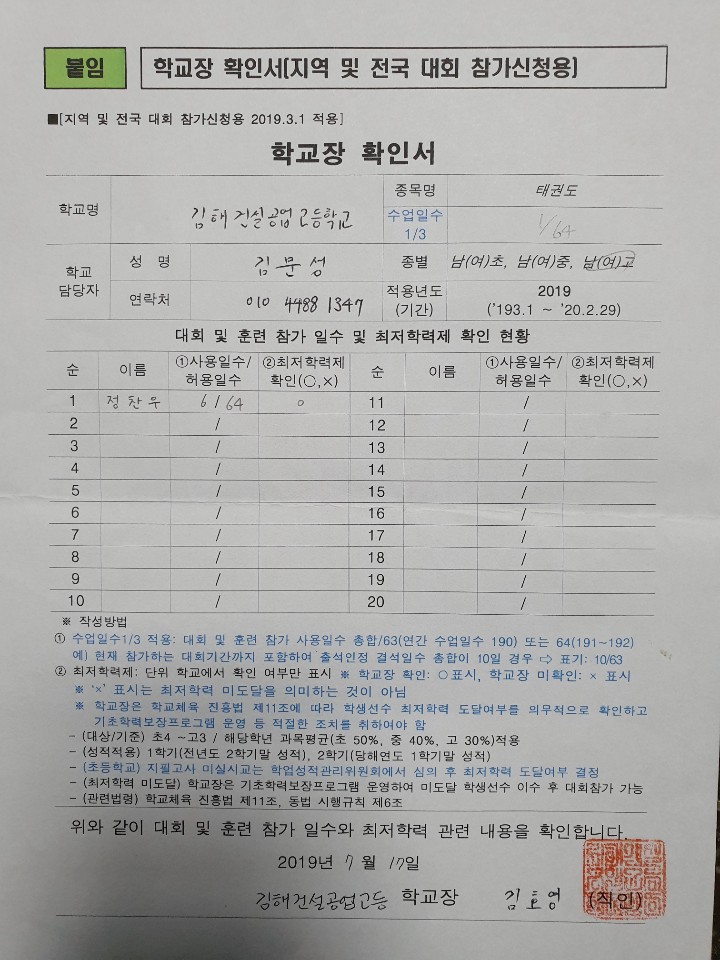 붙임 학교장 확인서(지역 및 전국 대회 참가신청용)
■[지역 및 전국 대회 참가신청용 2019.3.1 적용]
학교장 확인서
학교명 김해건설공업고등학교 종목명 태권도
수업일수 1/3 1/64
학교 담당자 성 명 김문성 종별 남(여)초, 남(여)중, 남(여)고
연락처 010 4488 1347 적용년도 (기간) 2019 ('193.1 ~ '20.2.29)
대회 및 훈련 참가 일수 및 최저학력제 확인 현황
순 이름 ①사용일수/허용일수 ②최저학력제 확인(○,×) 순 이름 ①사용일수/허용일수 ②최저학력제 확인(○,×)
1 정찬우 6/64 ○ 11 /
2 / 12 /
3 / 13 /
4 / 14 /
5 / 15 /
6 / 16 /
7 / 17 /
8 / 18 /
9 / 19 /
10 / 20 /
※ 작성방법
① 수업일수1/3 적용: 대회 및 훈련 참가 사용일수 총합/63(연간 수업일수 190) 또는 64(191~192)
예) 현재 참가하는 대회기간까지 포함하여 출석인정 결석일수 총합이 10일 경우 ⇨ 표기: 10/63
② 최저학력제: 단위 학교에서 확인 여부만 표시 ※ 학교장 확인: ○표시, 학교장 미확인: × 표시
※ '×' 표시는 최저학력 미도달을 의미하는 것이 아님
※ 학교장은 학교체육 진흥법 제11조에 따라 학생선수 최저학력 도달여부를 의무적으로 확인하고
기초학력보장프로그램 운영 등 적절한 조치를 취하여야 함
- (대상/기준) 초4 ~고3 / 해당학년 과목평균(초 50%, 중 40%, 고 30%)적용
- (성적적용) 1학기(전년도 2학기말 성적), 2학기(당해연도 1학기말 성적)
- (초등학교) 지필고사 미실시교는 학업성적관리위원회에서 심의 후 최저학력 도달여부 결정
- (최저학력 미도달) 학교장은 기초학력보장프로그램 운영하여 미도달 학생선수 이수 후 대회참가 가능
- (관련법령) 학교체육 진흥법 제11조, 동법 시행규칙 제6조
위와 같이 대회 및 훈련 참가 일수와 최저학력 관련 내용을 확인합니다.
2019년 7월 17일
김해건설공업고등 학교장 김호영 (직인)